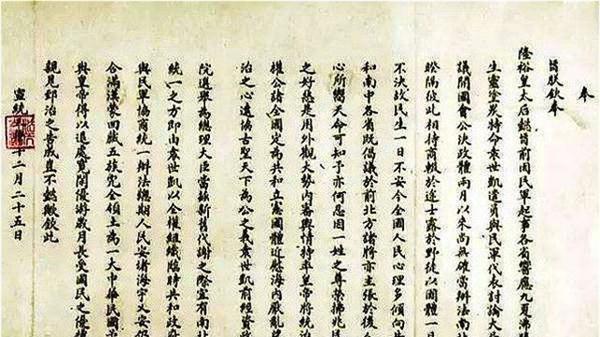 奉
旨朕欽奉
隆裕皇太后懿旨前因民軍起事各省響應九夏沸
生靈塗炭特命袁世凱遣員與民軍代表討論大
議開國會公決政體兩月以來尚無確當辦法南
睽隔彼此相持商輟於途士露於野徒以國體一日
不決故民生一日不安今全國人民心理多傾向
和南中各省既倡議於前北方諸將亦主張於後
心所嚮天命可知予亦何忍因一姓之尊榮拂兆
之好惡是用外觀大勢內審輿情特率皇帝將統治
權公諸全國定為共和立憲國體近慰海內厭亂
治之心遠協古聖天下為公之義袁世凱前經資政
院選舉為總理大臣當茲新舊代謝之際宜有南北
統一之方即由袁世凱以全權組織臨時共和政府
與民軍協商統一辦法總期人民安堵海宇乂安仍
合滿漢蒙回藏五族完全領土為一大中華民國
與皇帝得以退處寬閒優游歲月長受國民之優禮
親見郅治之告成豈不懿歟欽此
宣統年十二月二十五日